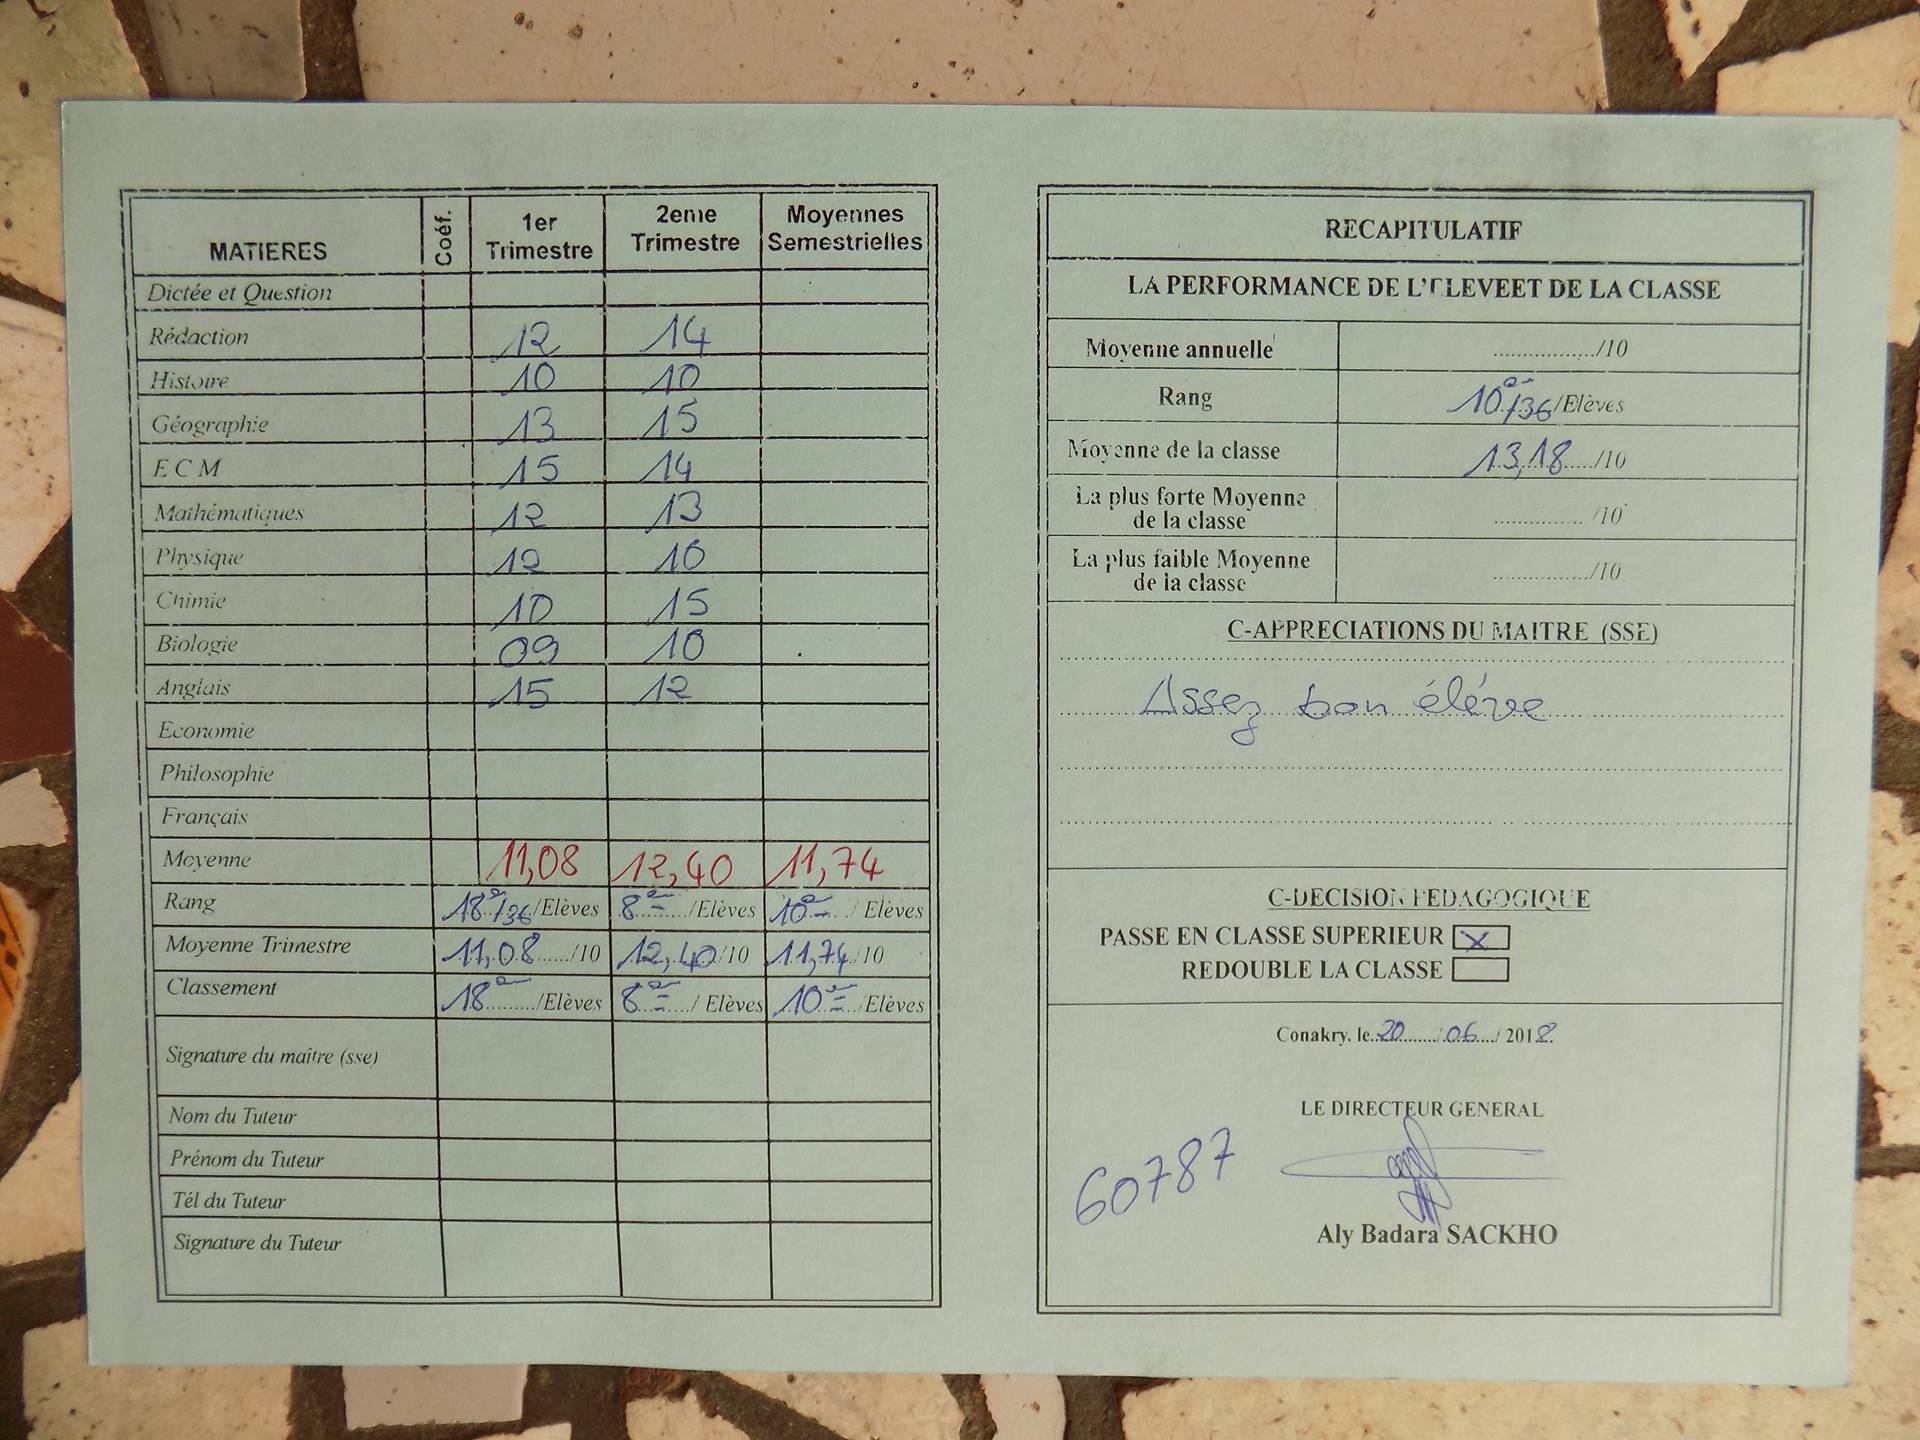 MATIERES Coéf. 1er Trimestre 2eme Trimestre Moyennes Semestrielles
Dictée et Question
Rédaction 12 14
Histoire 10 10
Géographie 13 15
E C M 15 14
Mathématiques 12 13
Physique 12 10
Chimie 10 15
Biologie 09 10
Anglais 15 12
Economie
Philosophie
Français
Moyenne 11,08 12,40 11,74
Rang 18e/36/Elèves 8e/Elèves 10e/Elèves
Moyenne Trimestre 11,08/10 12,40/10 11,74/10
Classement 18e/Elèves 8e/Elèves 10e/Elèves
Signature du maître (sse)
Nom du Tuteur
Prénom du Tuteur
Tél du Tuteur
Signature du Tuteur
RECAPITULATIF
LA PERFORMANCE DE L'ELEVEET DE LA CLASSE
Moyenne annuelle ................/10
Rang 10e/36/Elèves
Moyenne de la classe 13,18...../10
La plus forte Moyenne de la classe ............... /10
La plus faible Moyenne de la classe ................/10
C-APPRECIATIONS DU MAITRE (SSE)
Assez bon élève
C-DECISION PEDAGOGIQUE
PASSE EN CLASSE SUPERIEUR X
REDOUBLE LA CLASSE
Conakry, le 20 / 06 / 2018
LE DIRECTEUR GENERAL
60787
Aly Badara SACKHO